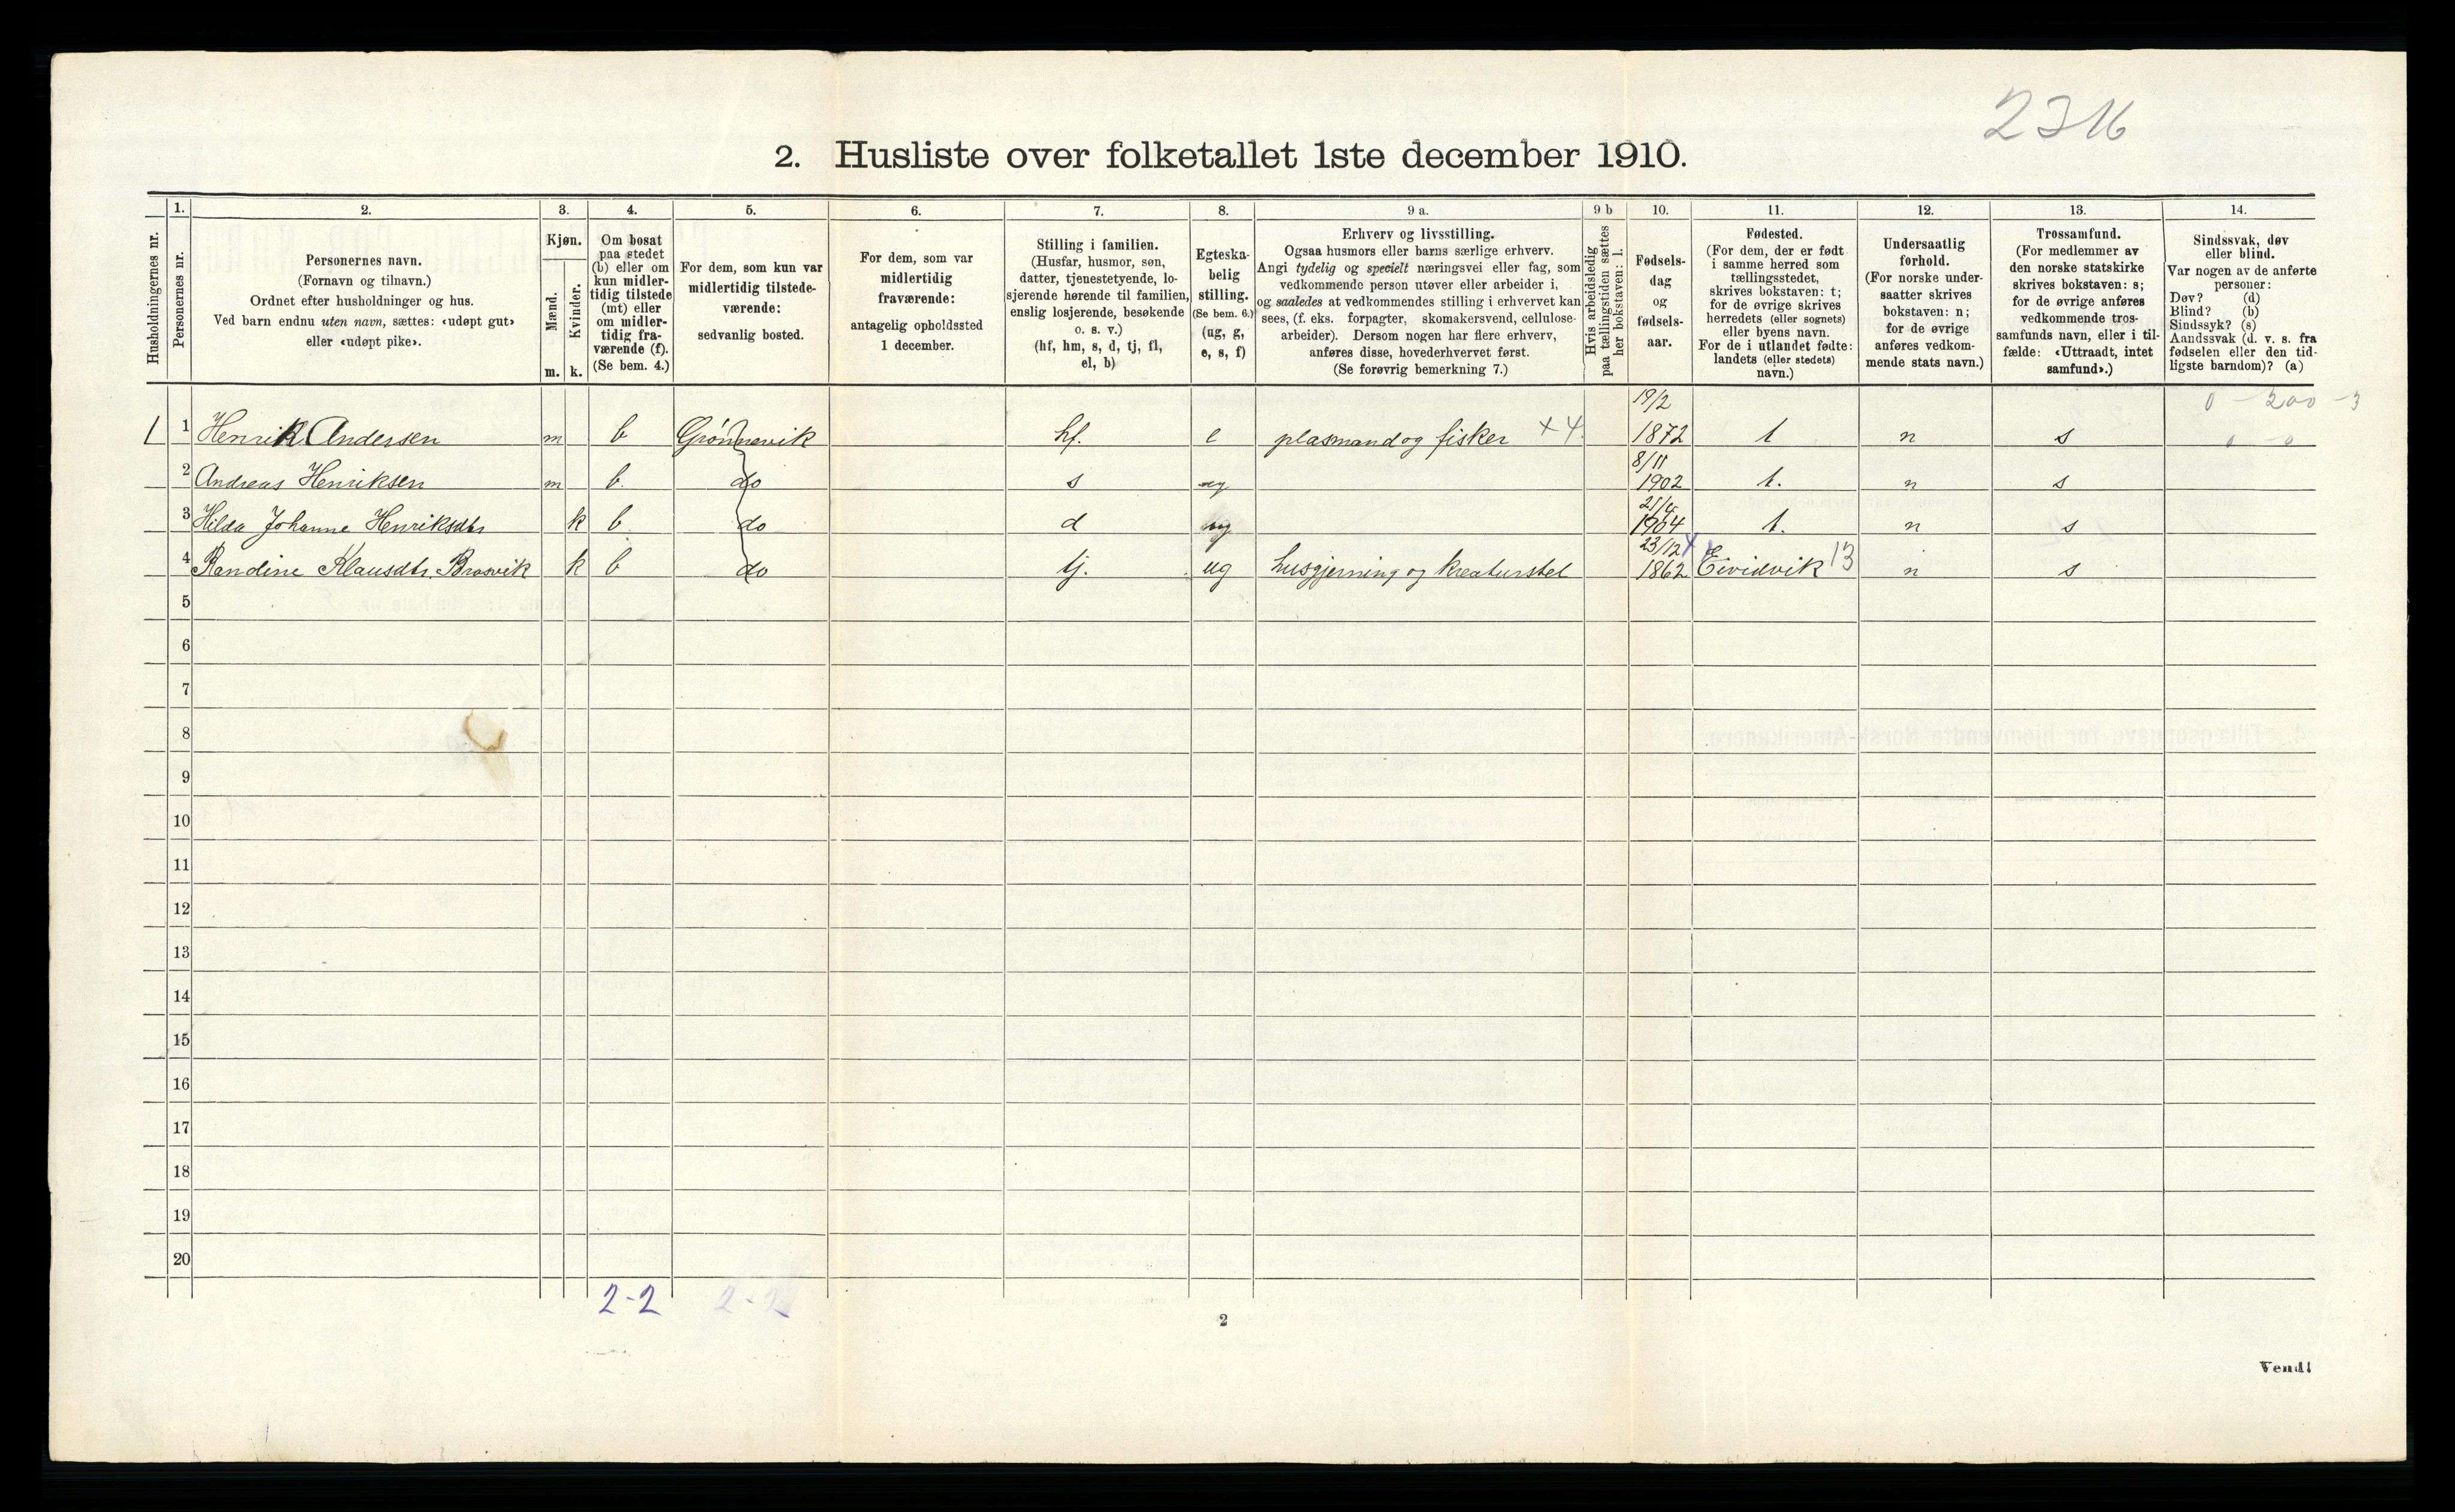 2316
2. Husliste over folketallet 1ste december 1910.
Husholdningernes nr.
1. Personernes nr.
2. Personernes navn.
(Fornavn og tilnavn.)
Ordnet efter husholdninger og hus.
Ved barn endnu uten navn, sættes: «udøpt gut»
eller «udøpt pike».
3. Kjøn.
Mænd. m.
Kvinder. k.
4. Om bosat
paa stedet
(b) eller om
kun midler-
tidig tilstede
(mt) eller
om midler-
tidig fra-
værende (f).
(Se bem. 4.)
5. For dem, som kun var
midlertidig tilstede-
værende:
sedvanlig bosted.
6. For dem, som var
midlertidig
fraværende:
antagelig opholdssted
1 december.
7. Stilling i familien.
(Husfar, husmor, søn,
datter, tjenestetyende, lo-
sjerende hørende til familien,
enslig losjerende, besøkende
o. s. v.)
(hf, hm, s, d, tj, fl,
el, b)
8. Egteska-
belig
stilling.
(Se bem. 6.)
(ug, g,
e, s, f)
9 a. Erhverv og livsstilling.
Ogsaa husmors eller barns særlige erhverv.
Angi tydelig og specielt næringsvei eller fag, som
vedkommende person utøver eller arbeider i,
og saaledes at vedkommendes stilling i erhvervet kan
sees, (f. eks. forpagter, skomakersvend, cellulose-
arbeider). Dersom nogen har flere erhverv,
anføres disse, hovederhvervet først.
(Se forøvrig bemerkning 7.)
9 b Hvis arbeidsledig
paa tællingstiden sættes
her bokstaven: l.
10. Fødsels-
dag
og
fødsels-
aar.
11. Fødested.
(For dem, der er født
i samme herred som
tællingsstedet,
skrives bokstaven: t;
for de øvrige skrives
herredets (eller sognets)
eller byens navn.
For de i utlandet fødte:
landets (eller stedets)
navn.)
12. Undersaatlig
forhold.
(For norske under-
saatter skrives
bokstaven: n;
for de øvrige
anføres vedkom-
mende stats navn.)
13. Trossamfund.
(For medlemmer av
den norske statskirke
skrives bokstaven: s;
for de øvrige anføres
vedkommende tros-
samfunds navn, eller i til-
fælde: «Uttraadt, intet
samfund».)
14. Sindssvak, døv
eller blind.
Var nogen av de anførte
personer:
Døv? (d)
Blind? (b)
Sindssyk? (s)
Aandssvak (d. v. s. fra
fødselen eller den tid-
ligste barndom)? (a)
19/2 0 - 200 - 3
1 1 Henrik Andersen m b Grønnevik hf. e plasmand og fisker x 4 1872 t n s 0 0
8/11
2 Andreas Henriksen m b. do s ug 1902 t. n s
21/4
3 Hilda Johanne Henriksdtr k b do d ug 1904 t. n s
23/12
4 Randine Klausdtr. Brosvik k b do tj. ug husgjerning og kreaturstel 1862 Eividvik 13 n s
5
6
7
8
9
10
11
12
13
14
15
16
17
18
19
20
2-2 2-2
2
Vend!